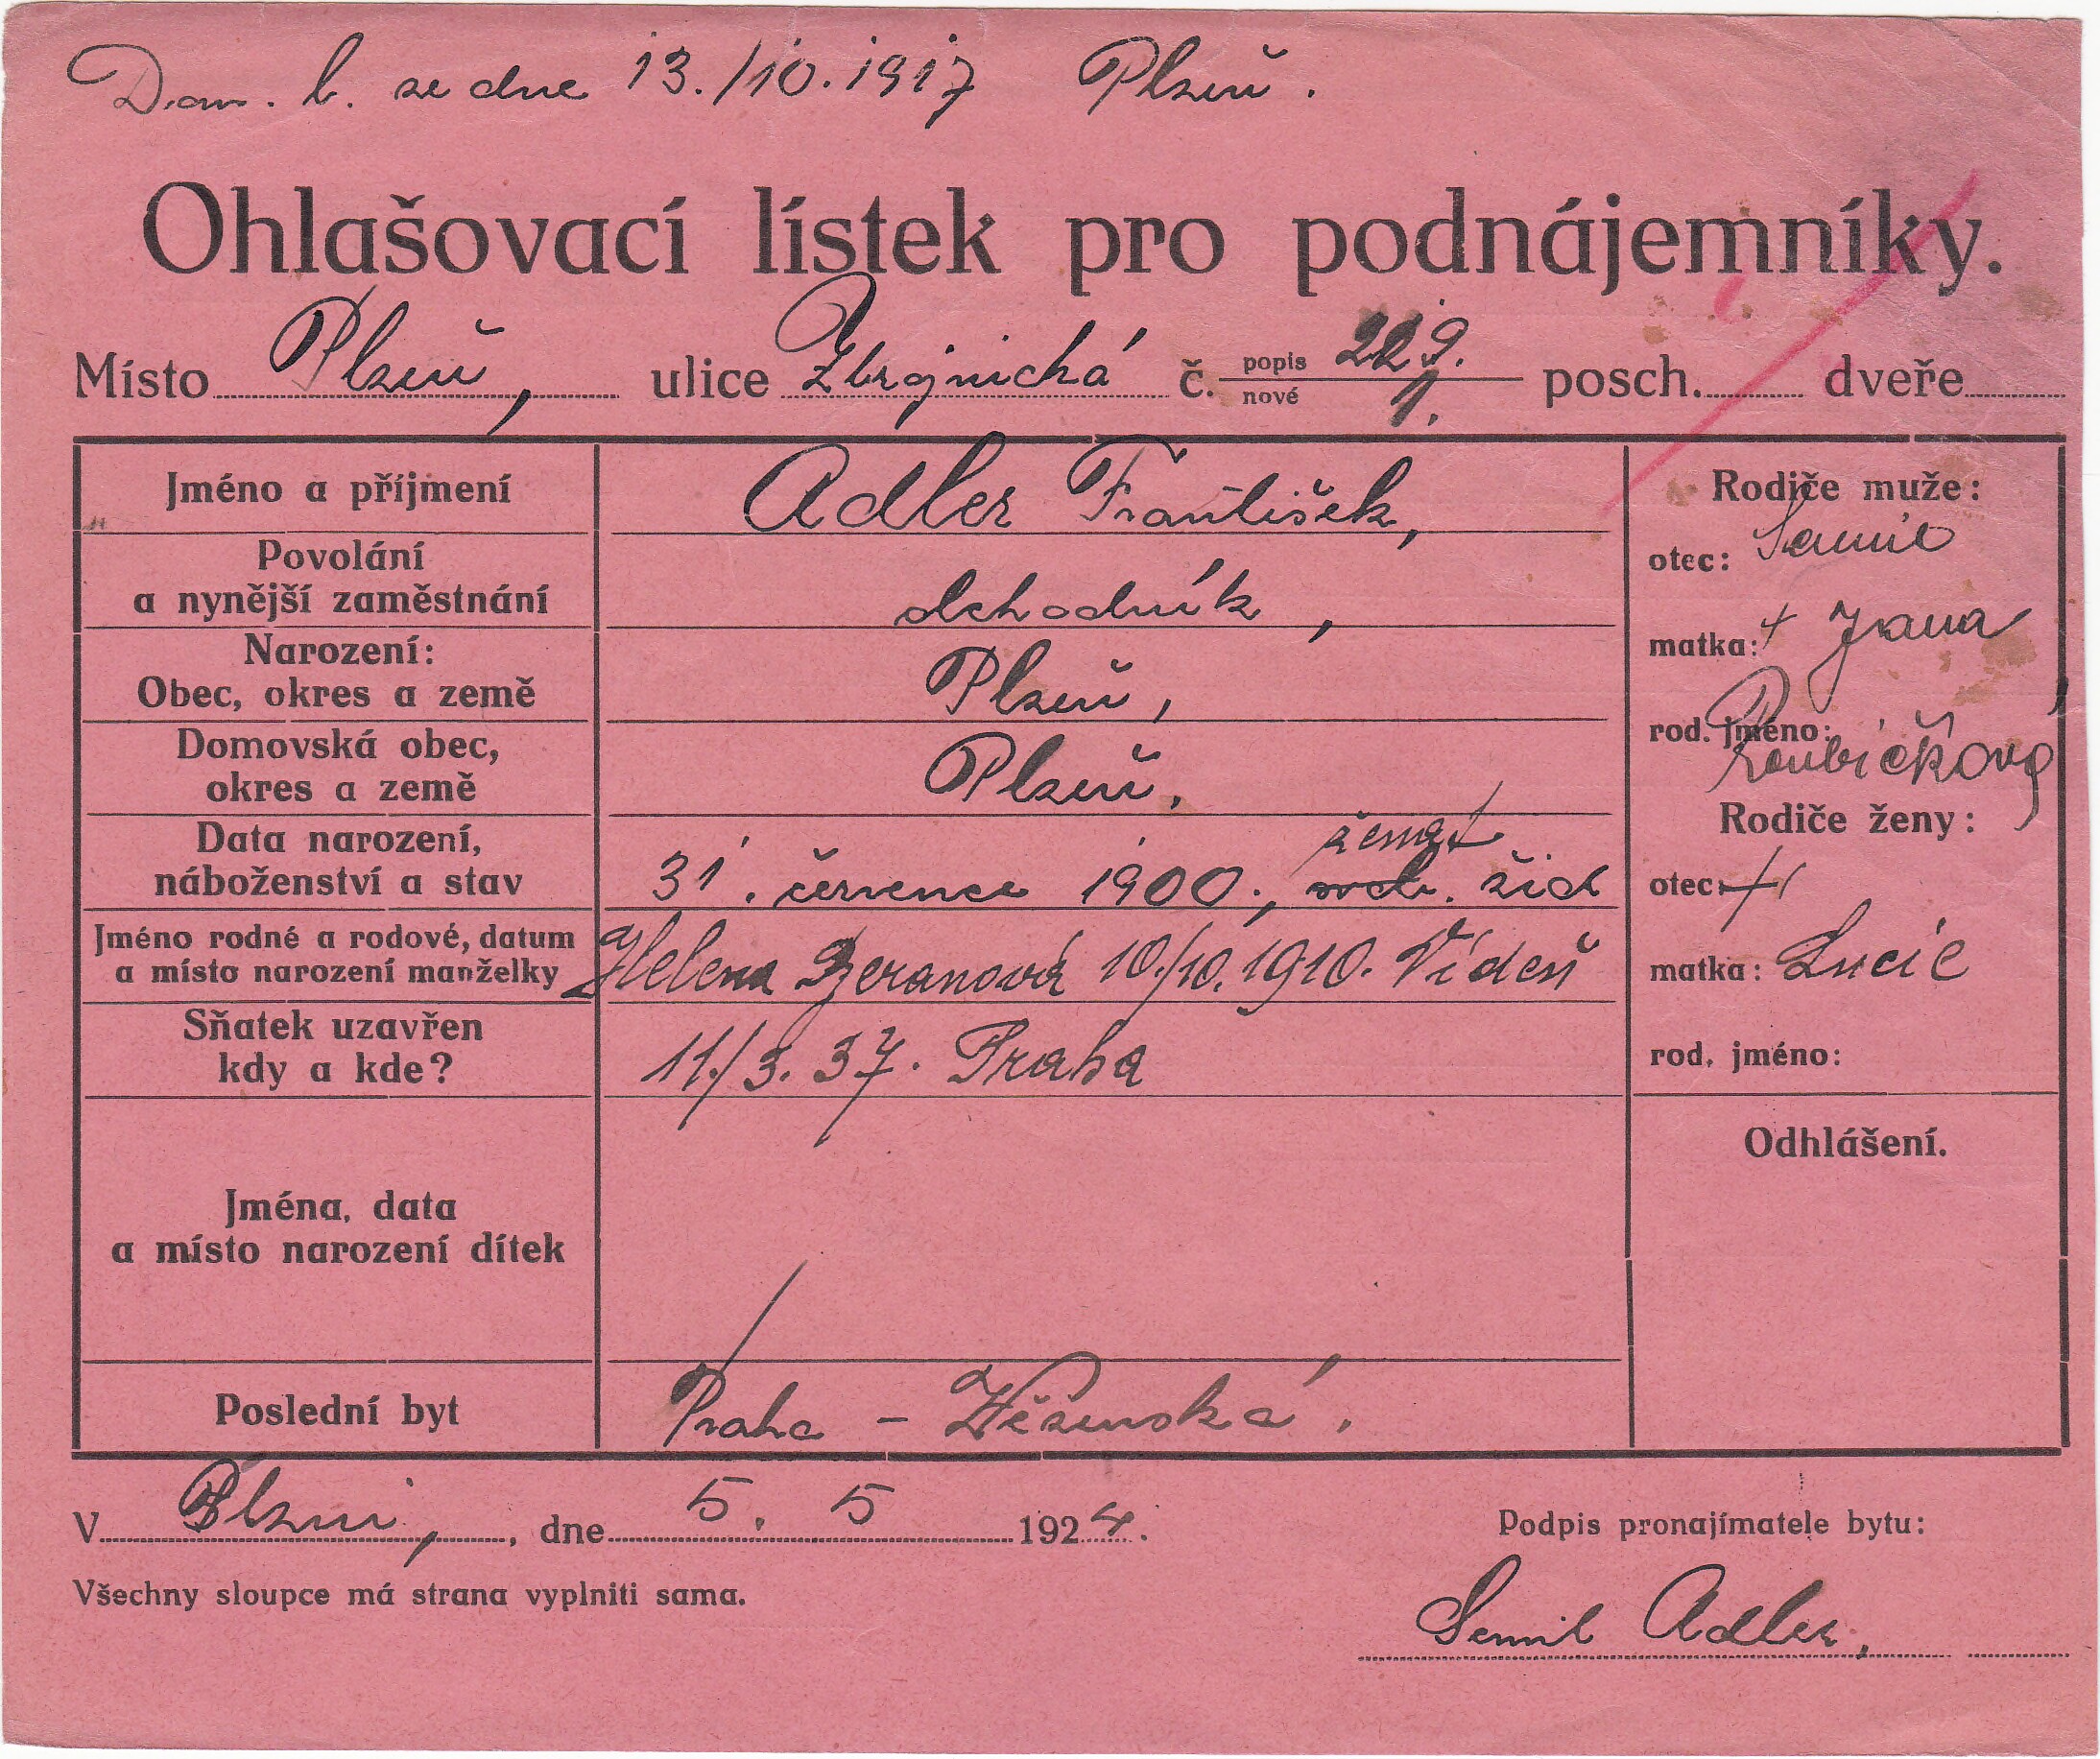 Dom. l. ze dne 13./10.1917 Plzeň.
Ohlašovací lístek pro podnájemníky.
Místo Plzeň, ulice Zbrojnická č. popis 229. nové 1. posch. dveře
Jméno a příjmení Adler František,
Povolání
a nynější zaměstnání obchodník,
Narození:
Obec, okres a země Plzeň,
Domovská obec,
okres a země Plzeň.
ženat
Data narození,
náboženství a stav 31. července 1900, svob. žid
Jméno rodné a rodové, datum
a místo narození manželky Helena Beranová 10./10.1910. Vídeň
Sňatek uzavřen
kdy a kde? 11./3. 37. Praha
Jména, data
a místo narození dítek
Poslední byt Praha - Vězeňská.
Rodiče muže:
otec:
matka: + Jana
rod. jméno:
Roubíčková
Rodiče ženy:
otec: +
matka: Lucie
rod. jméno:
Odhlášení.
V Plzni, dne 5. 5 1924.
Podpis pronajímatele bytu:
Všechny sloupce má strana vyplniti sama.
Adler.